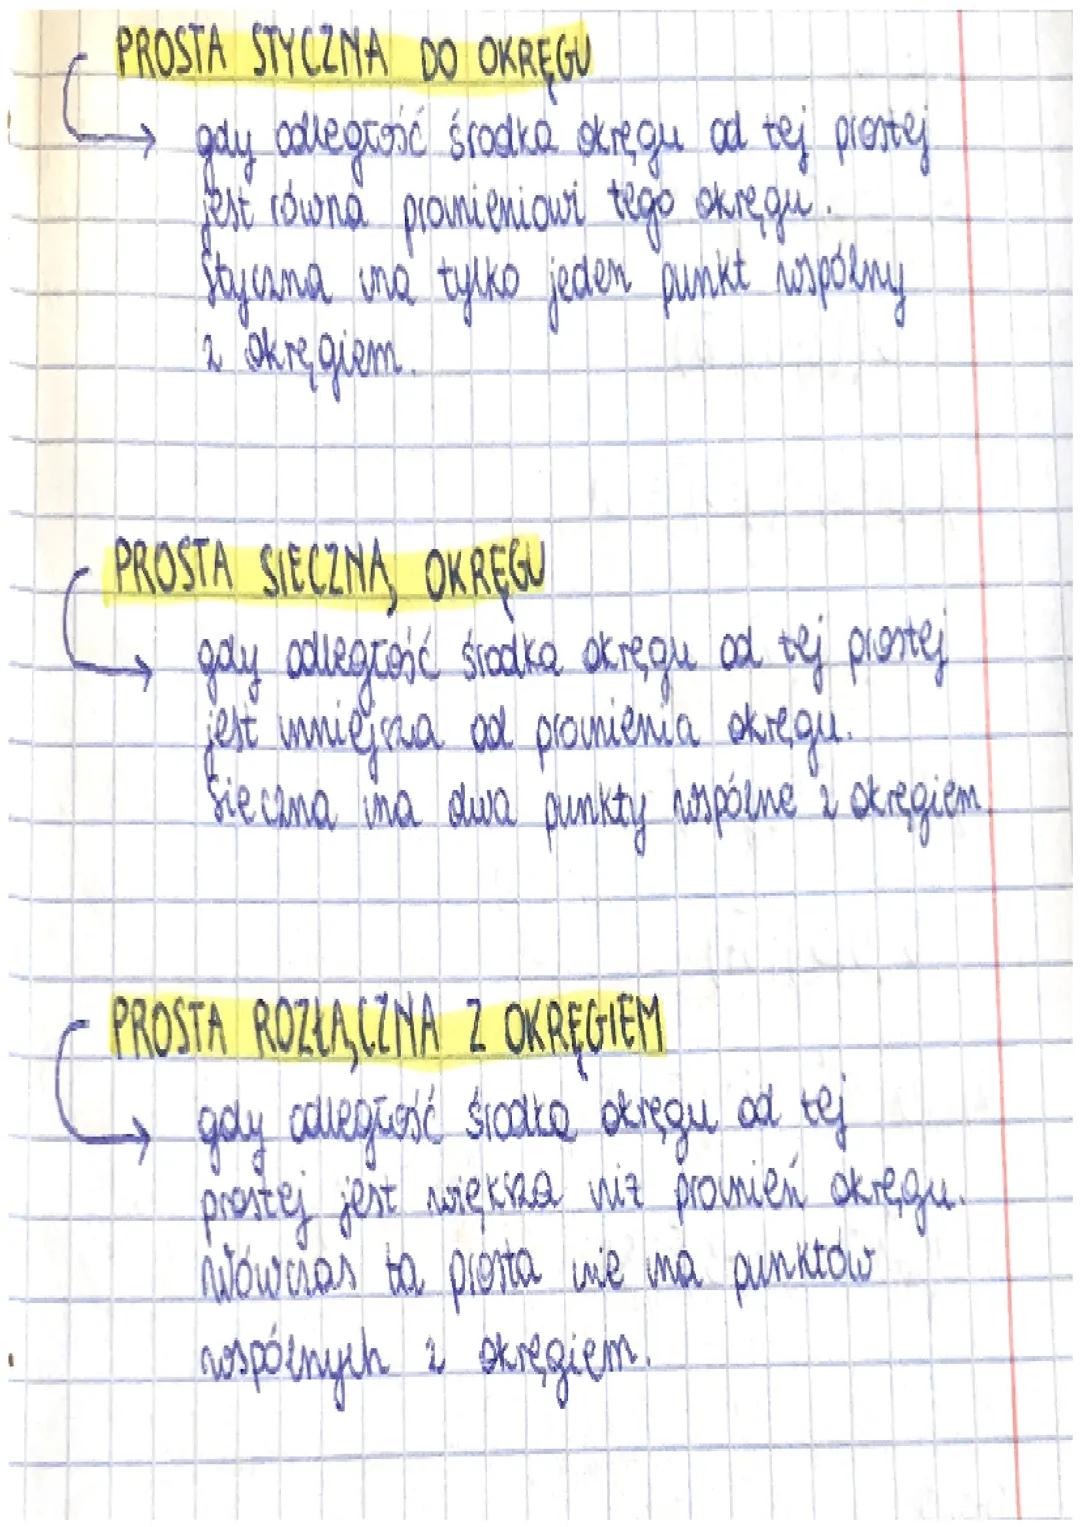 PROSTA STYCZNA DO OKRĘGU
→ gdy odległość środka okręgu od tej prostej
jest równa promieniowi tego okręgu.
Styczna ma tylko jeden punkt wspólny
z okręgiem.
PROSTA SIECZNĄ OKRĘGU
→ gdy odległość środka okręgu od tej prostej
jest mniejsza od promienia okręgu.
Sieczna ma dwa punkty wspólne z okręgiem.
PROSTA ROZŁĄCZNA Z OKRĘGIEM
→ gdy odległość środka okręgu od tej
prostej jest większa niż promień okręgu.
Wówczas ta prosta nie ma punktów
wspólnych z okręgiem.